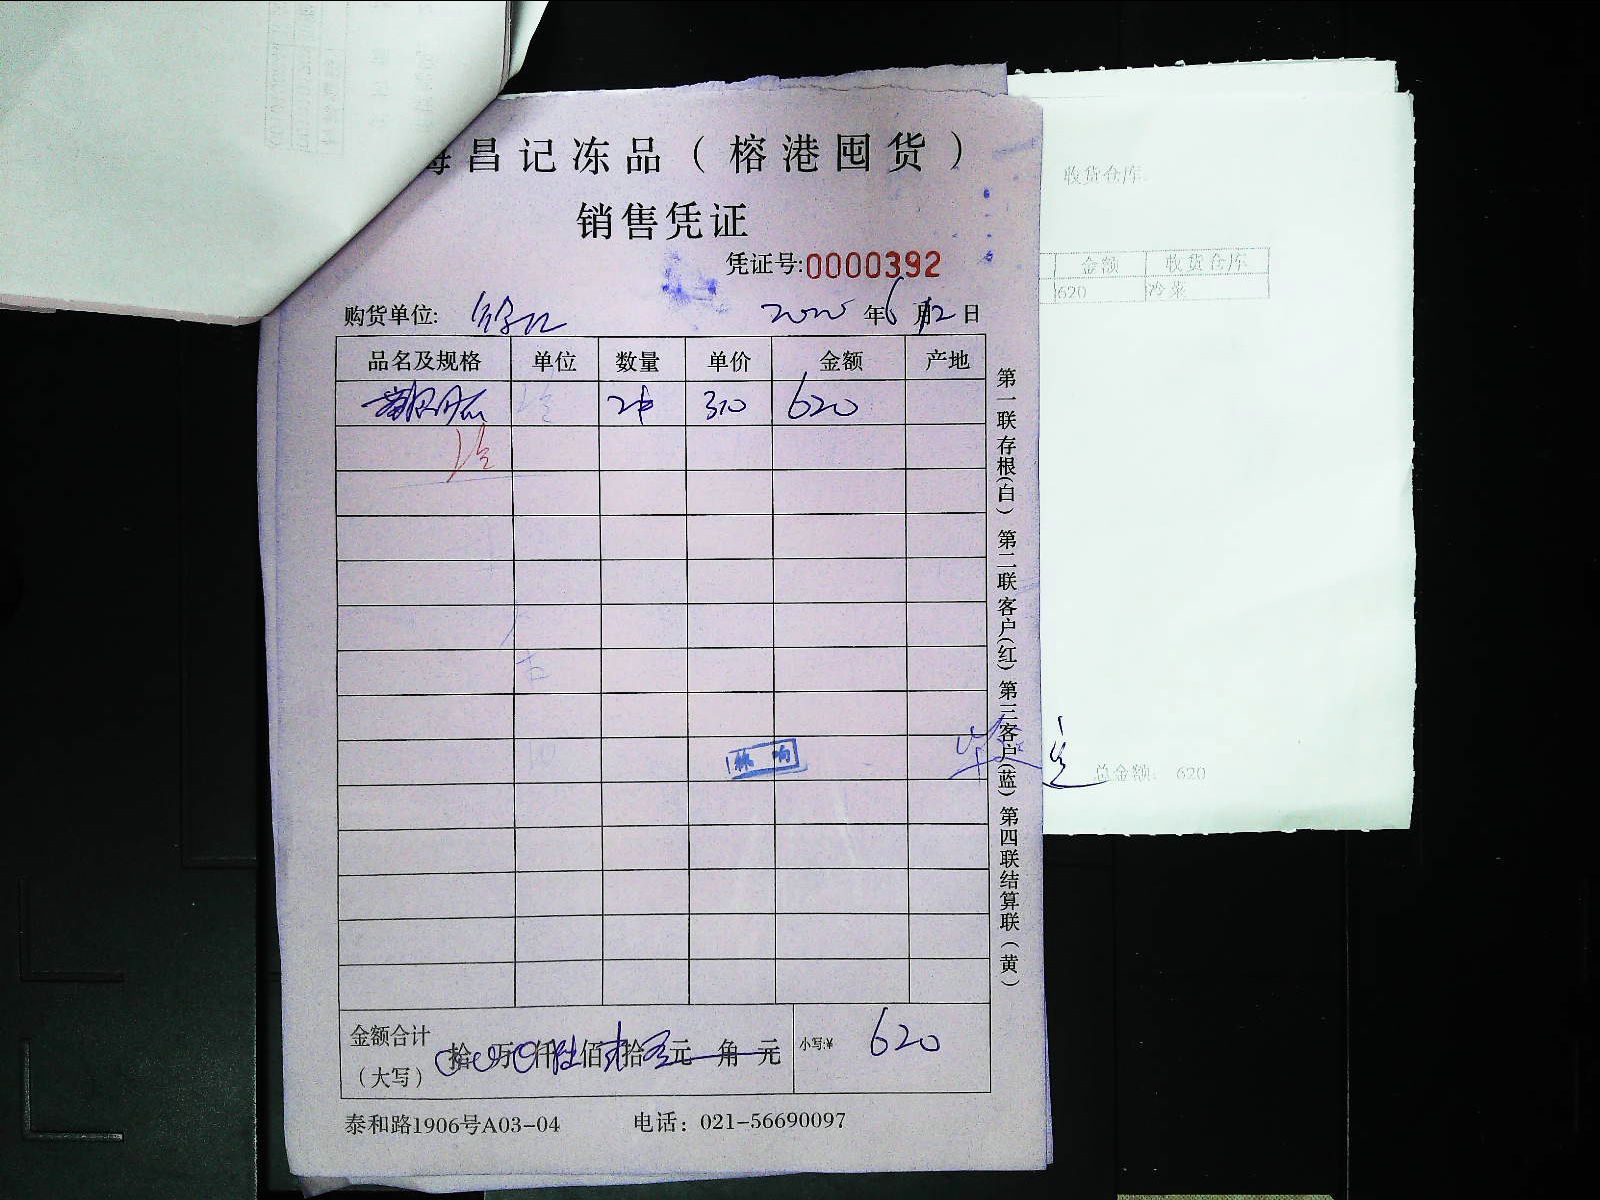 昌记冻品（榕港囤货）
销售凭证
凭证号:0000392
购货单位: 2020年6月12日
品名及规格 单位 数量 单价 金额 产地
2件 310 620
冷
第一联存根(白) 第二联客户(红) 第三客户(蓝) 第四联结算联(黄)
金额合计（大写） 拾 万 仟 陆佰 贰拾 元 角 元 小写:¥ 620
泰和路1906号A03-04 电话：021-56690097
收货仓库
金额 收货仓库
620 冷菜
总金额: 620